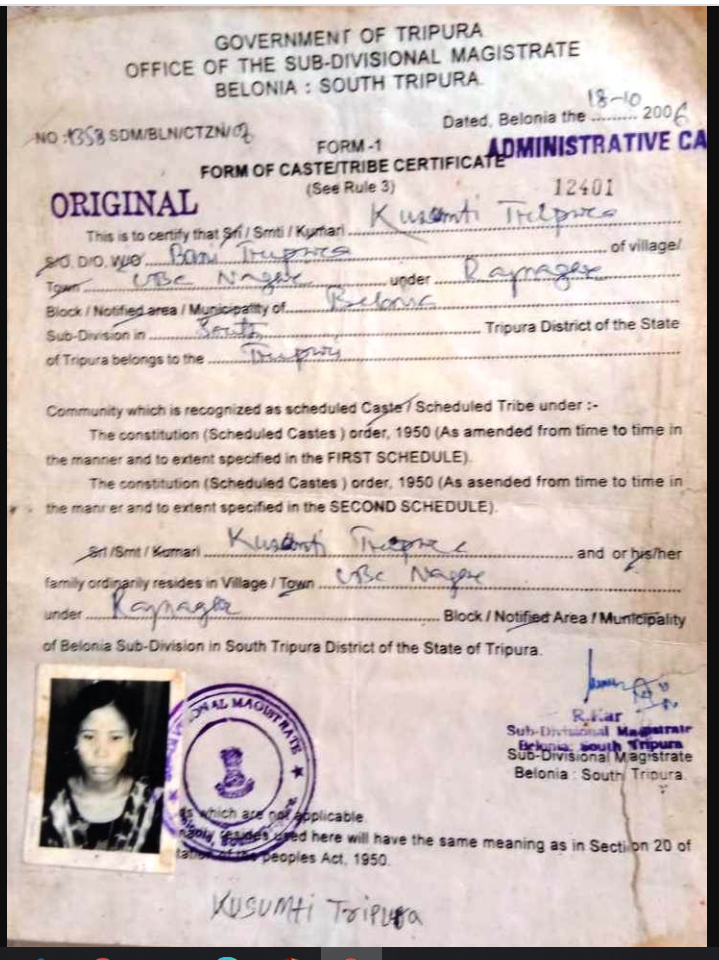 GOVERNMENT OF TRIPURA
OFFICE OF THE SUB-DIVISIONAL MAGISTRATE
BELONIA : SOUTH TRIPURA.
Dated, Belonia the 18-10 2006
NO :1358 SDM/BLN/CTZN/02
FORM -1
ADMINISTRATIVE CA
FORM OF CASTE/TRIBE CERTIFICATE
(See Rule 3)
ORIGINAL
12401
This is to certify that Sri / Smti / Kumari Kusumti Tripura
S/O. D/O. W/O Tripura of village/
Town UBC Nagar under Rajnagar
Block / Notified area / Municipality of Belonia
Sub-Division in South Tripura District of the State
of Tripura belongs to the Tripuri
Community which is recognized as scheduled Caste / Scheduled Tribe under :-
The constitution (Scheduled Castes ) order, 1950 (As amended from time to time in
the manner and to extent specified in the FIRST SCHEDULE).
The constitution (Scheduled Castes ) order, 1950 (As asended from time to time in
the manr er and to extent specified in the SECOND SCHEDULE).
Sri /Smt / Kumari Kusumti Tripura and or his/her
family ordinarily resides in Village / Town UBC Nagar
under Rajnagar Block / Notified Area / Municipality
of Belonia Sub-Division in South Tripura District of the State of Tripura.
R.Kar
Sub-Divisional Magistrate
Belonia: South Tripura
Sub-Divisional Magistrate
Belonia : South Tripura.
SIONAL MAGISTRATE
which are not applicable.
resides used here will have the same meaning as in Section 20 of
of the peoples Act, 1950.
KUSUMTI TRIPURA